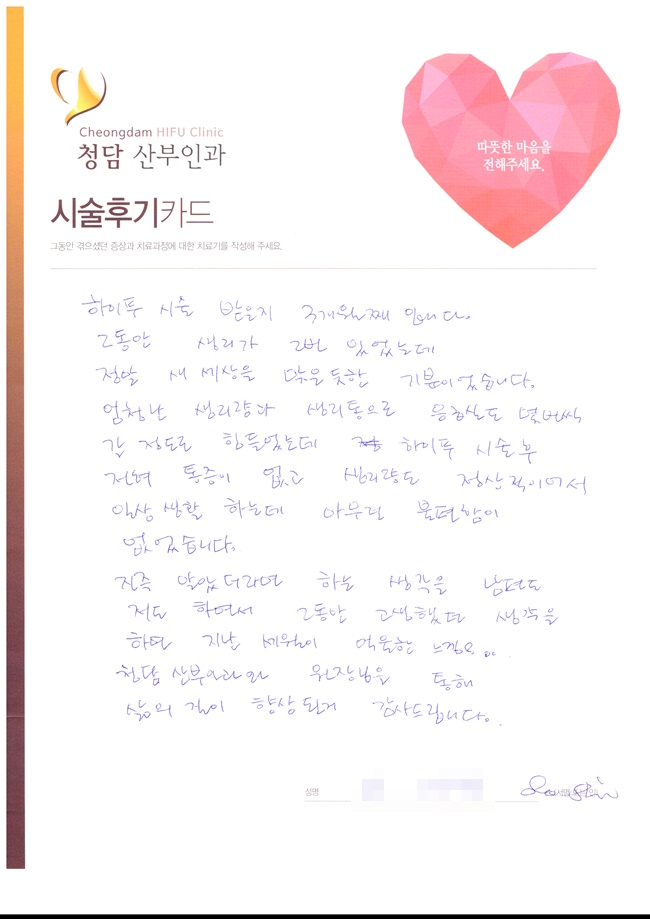 Cheongdam HIFU Clinic
청담 산부인과
따뜻한 마음을
전해주세요.
시술후기카드
그동안 겪으셨던 증상과 치료과정에 대한 치료기를 작성해 주세요.
하이푸 시술 받은지 3개월째 입니다.
그동안 생리가 2번 있었는데
정말 새 세상을 맞은듯한 기분이었습니다.
엄청난 생리량과 생리통으로 응급실도 몇번씩
갈 정도로 힘들었는데 하이푸 시술 후
전혀 통증이 없고 생리량도 정상적이어서
일상 생활 하는데 아무런 불편함이
없었습니다.
진즉 알았더라면 하는 생각을 남편도
저도 하면서 그동안 고생했던 생각을
하면 지난 세월이 억울한 느낌도...
청담 산부인과와 원장님을 통해
삶의 질이 향상된거 감사드립니다.
성명